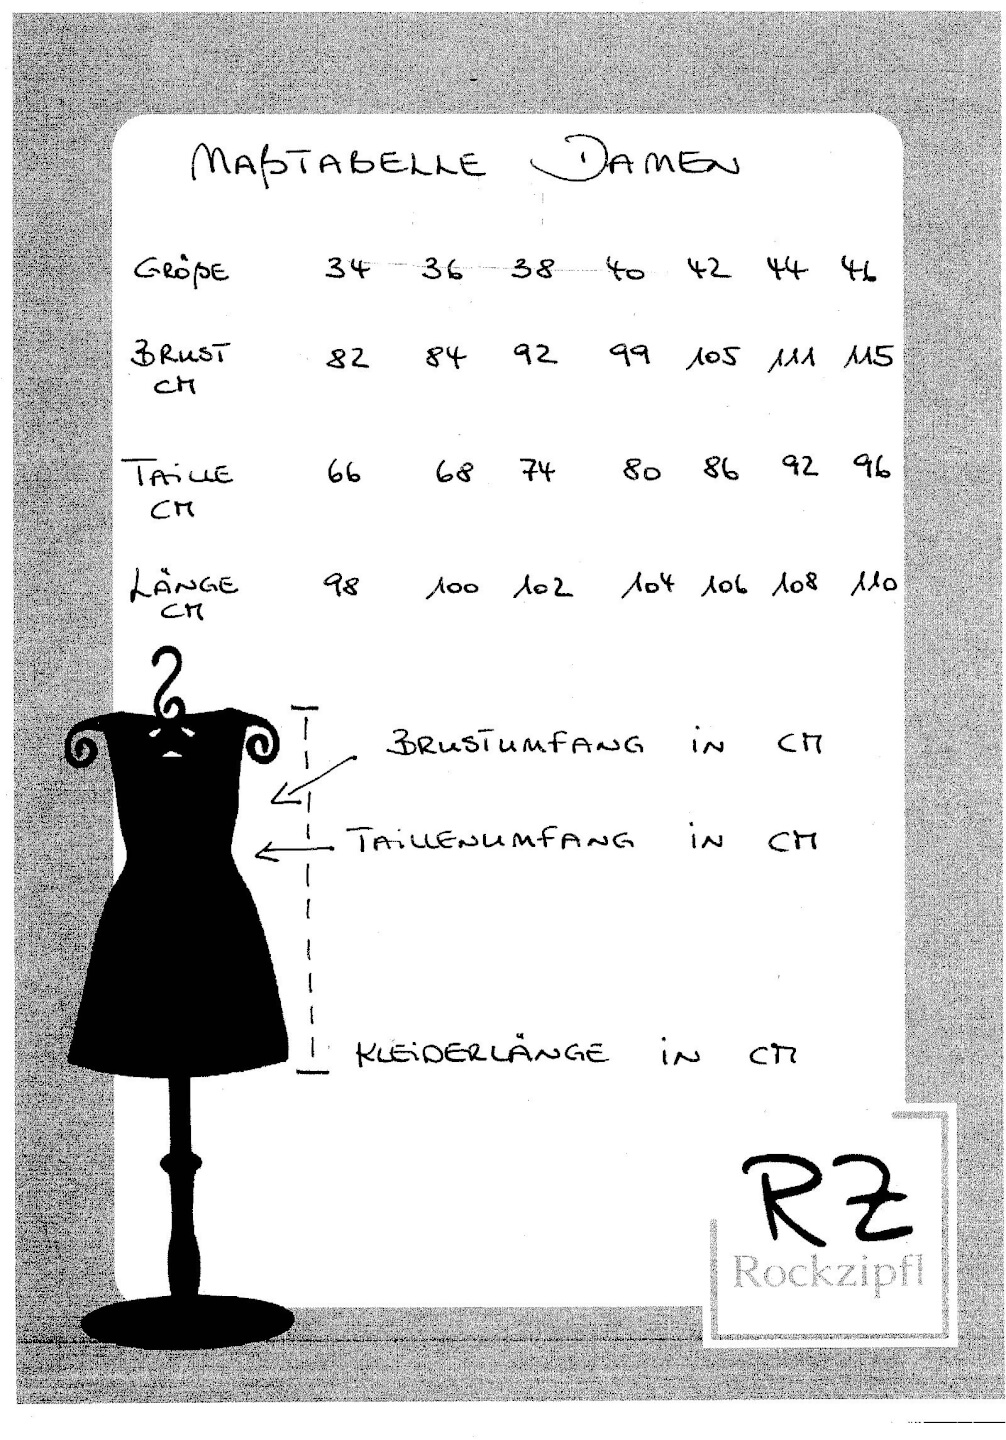 MAßTABELLE DAMEN
GRÖßE 34 36 38 40 42 44 46
BRUST 82 84 92 99 105 111 115
CM
TAiLLE 66 68 74 80 86 92 96
CM
LÄNGE 98 100 102 104 106 108 110
CM
BRUSTUMFANG iN CM
TAiLLENUMFANG iN CM
KLEiDERLÄNGE iN CM
RZ
Rockzipfl